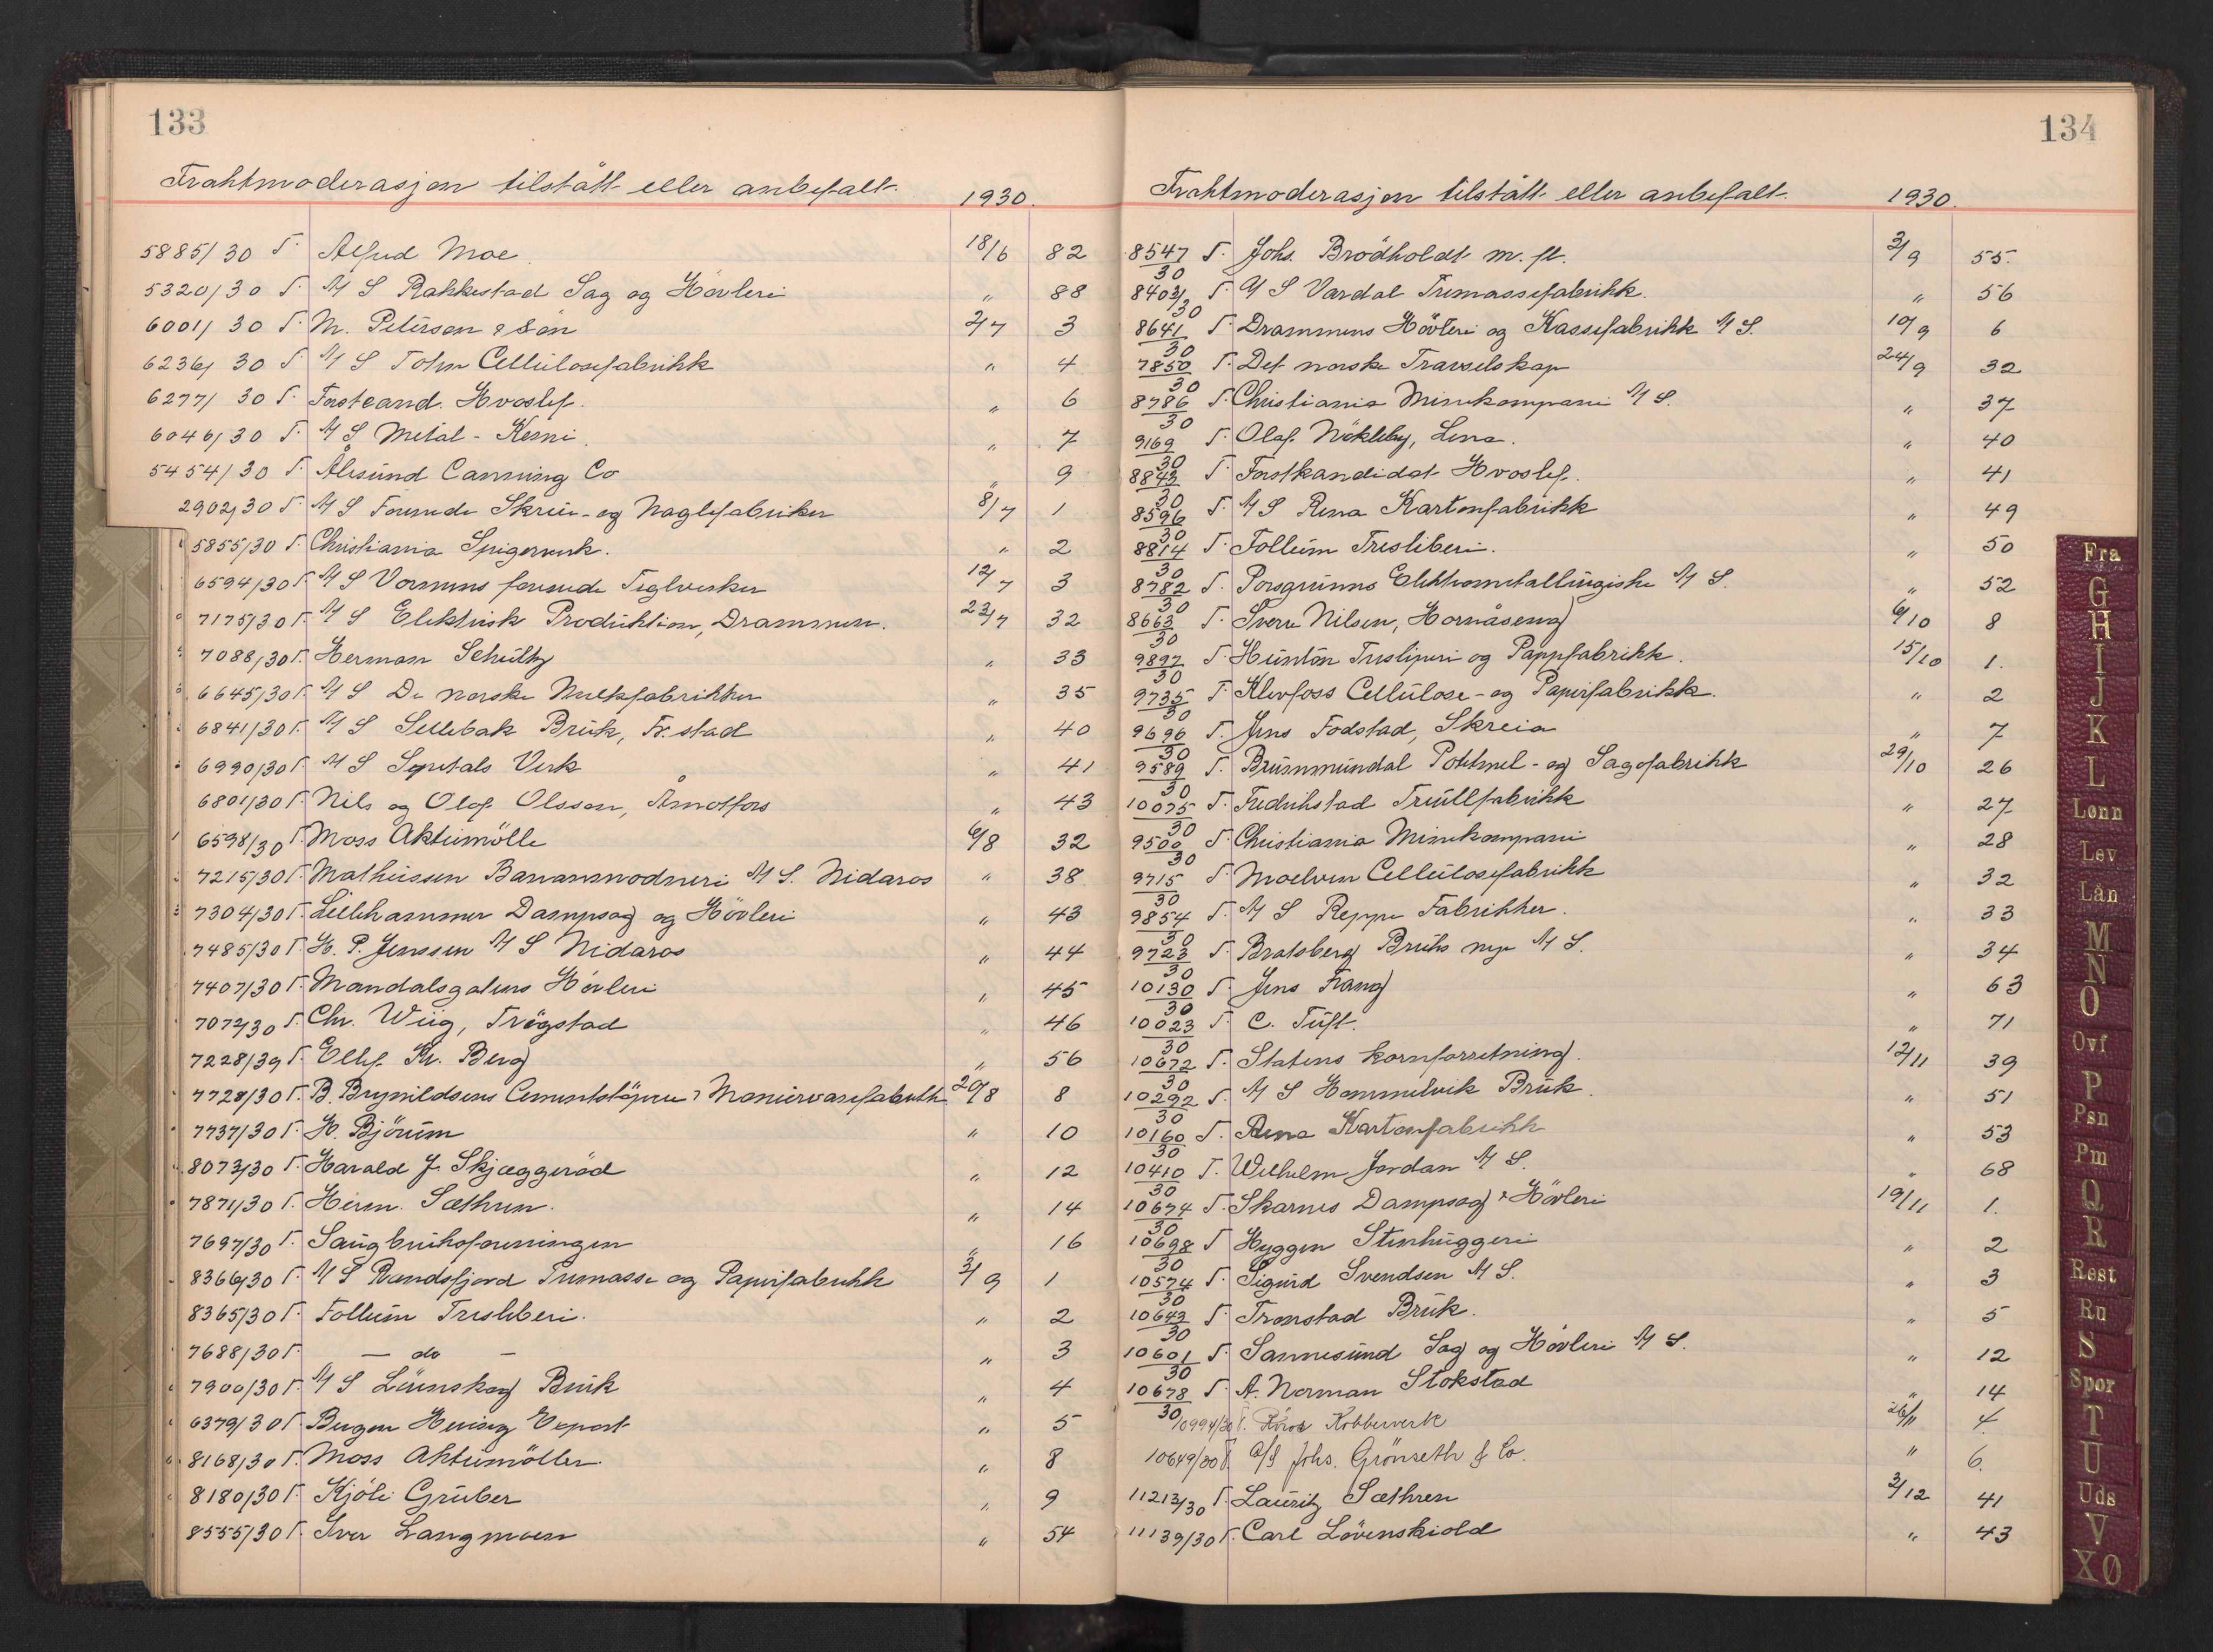 133
Frahtmoderasjon tilstått eller anbefalt. 1930.
5885/30 T. Alfred Moe. 18/6 82
5320/30 T. A/S Rakkestad Sag og Hövleri " 88
6001/30 T. M. Peterson & Sön 2/7 3
6236/30 T. A/S Toten Cellulosefabrikk " 4
6277/30 T. Forstcand. Hvoslef. " 6
6046/30 T. A/S Metal-Kemi. " 7
5454/30 T. Ålesund Canning Co " 9
2902/30 T. A/S Forenede Skrue- og Naglefabriker 8/7 1
5855/30 T. Christiania Spigerverk. " 2
6594/30 T. A/S Vormens forenede Teglverker 12/7 3
7175/30 T. A/S Elektrisk Produktion, Drammen. 23/7 32
7088/30 T. Herman Schultz " 33
6645/30 T. A/S De norske Melkfabrikker " 35
6841/30 T. A/S Sellebak Bruk, Fr.stad " 40
6990/30 T. A/S Syretals Verk " 41
6801/30 T. Nils og Olof Olsson, Åmotfors " 43
6598/30 T. Moss Aktiemölle 6/8 32
7215/30 T. Mathiessen Bananmodneri A/S. Nidaros " 38
7304/30 T. Lillehammer Dampsag og Hövleri " 43
7485/30 T. H. P. Jenssen A/S Nidaros " 44
7407/30 T. Mandalsgatens Hövleri " 45
7072/30 T. Chr. Wiig, Trögstad " 46
7228/39 T. Ellef Kr. Berg " 56
7728/30 T. B. Brynildsens Cementstöperi & Moniervarefabrikk 20/8 8
7737/30 T. H. Björum " 10
8073/30 T. Harald J. Skjæggeröd " 12
7871/30 T. Herm. Sæthren. " 14
7697/30 T. Saugbruksforeningen " 16
8366/30 T. A/S Randsfjord Tremasse og Papirfabrikk 3/9 1
8365/30 T. Follum Tresliberi. " 2
7688/30 T. — do — " 3
7900/30 T. A/S Lörenskog Bruk " 4
6379/30 T. Bergen Hering Export " 5
8168/30 T. Moss Aktiemöller. " 8
8180/30 T. Kjöli Gruber " 9
8555/30 T. Iver Langmoen " 54
134
Frahtmoderasjon tilstått eller anbefalt. 1930.
8547/30 T. Johs. Brödholdt m. fl. 3/9 55.
8403/30 T. A/S Vardal Tremassefabrikk. " 56
8641/30 T. Drammens Hövleri og Kassefabrikk A/S. 10/9 6
7850/30 T. Det norske Travselskap 24/9 32
8786/30 T. Christiania Minekompani A/S. " 37
9169/30 T. Olaf Nökleby, Lena. " 40
8843/30 T. Forstkandidat Hvoslef. " 41
8596/30 T. A/S Rena Kartonfabrikk " 49
8814/30 T. Follum Tresliberi. " 50
8782/30 T. Porsgrunns Elektrometallurgiske A/S. " 52
8663/30 T. Sverre Nilsen, Hornåseng 6/10 8
9897/30 T. Hunton Tresliperi og Pappfabrikk. 15/10 1.
9735/30 T. Klevfoss Cellulose- og Papirfabrikk. " 2
9696/30 T. Jens Fodstad, Skreia " 7
9589/30 T. Brummundal Potetmel- og Sagofabrikk 29/10 26
10075/30 T. Fredrikstad Trüllfabrikk " 27
9500/30 T. Christiania Minekompani " 28
9715/30 T. Moelven Cellulosefabrikk " 32
9854/30 T. A/S Reppe Fabrikker. " 33
9723/30 T. Bratsberg Bruks nye A/S. " 34
10130/30 T. Jens Frang " 63
10023/30 T. C. Tuft. " 71
10672/30 T. Statens kornforretning. 12/11 39
10292/30 T. A/S Hommelvik Bruk. " 51
10160/30 T. Rena Kartonfabrikk " 53
10410/30 T. Wilhelm Jordan A/S. " 68
10674/30 T. Skarnes Dampsag & Hövleri 19/11 1.
10698/30 T. Hyggen Stenhuggeri " 2
10574/30 T. Sigurd Svendsen A/S. " 3
10643/30 T. Tronstad Bruk. " 5
10601/30 T. Sannesund Sag og Hövleri A/S. " 12
10678/30 T. A. Norman Stokstad " 14
10994/30 T. Röros Kobberverk 26/11 4.
10649/30 T. A/S Johs. Grönseth & Co. " 6.
11213/30 T. Lauritz Sæthren 3/12 41
11139/30 T. Carl Lövenskiold " 43
Fra
G
H
I
J
K
L
Lønn
Lev
Lån
M
N
O
Ovf
P
Psn
Pm
Q
R
Rest
Ru
S
Spor
T
U
Uds
V
X Ø